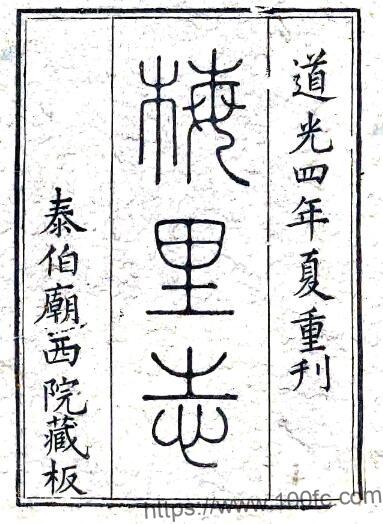 道光四年夏重刊
梅里志
泰伯廟西院藏板
https://www.100fc.com